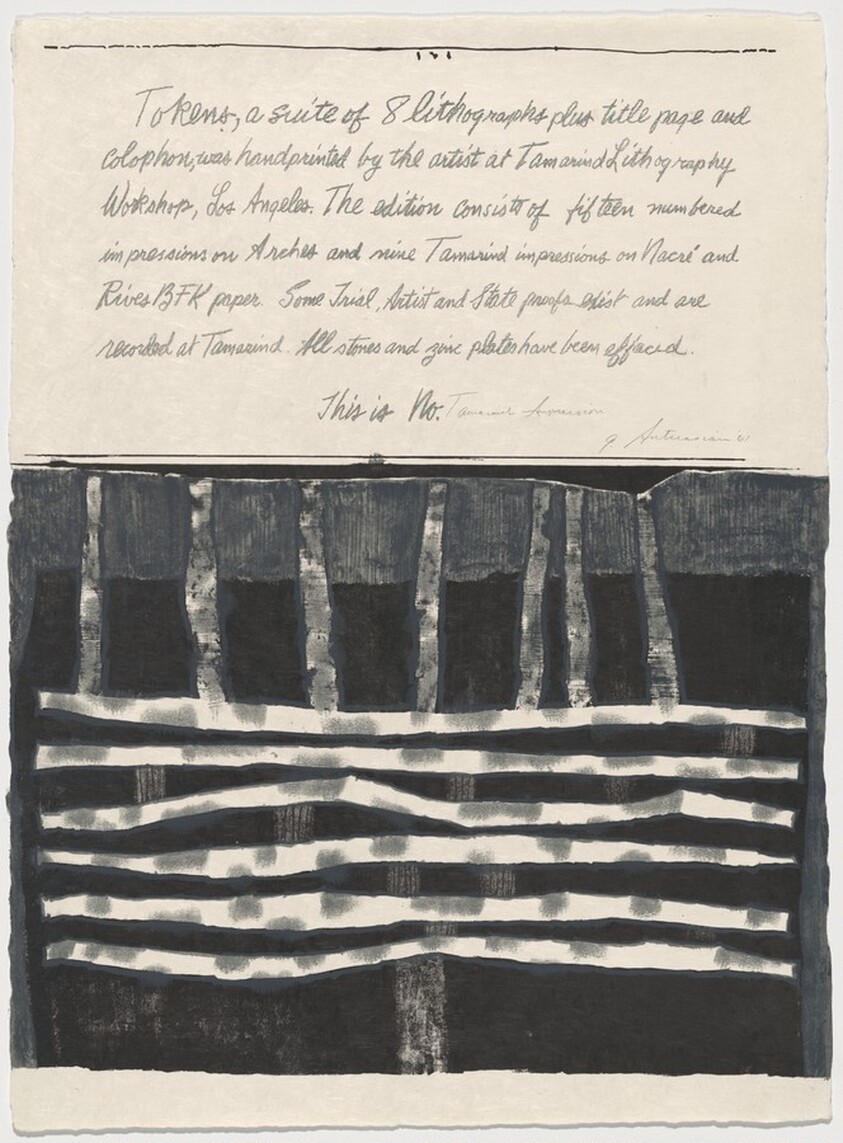 Tokens, a suite of 8 lithographs plus title page and
colophon, was handprinted by the artist at Tamarind Lithography
Workshop, Los Angeles. The edition consists of fifteen numbered
impressions on Arches and nine Tamarind impressions on Nacré and
Rives BFK paper. Some Trial, Artist and State proofs exist and are
recorded at Tamarind. All stones and zinc plates have been effaced.
This is No. Tamarind Impression
g. Antreasian '61